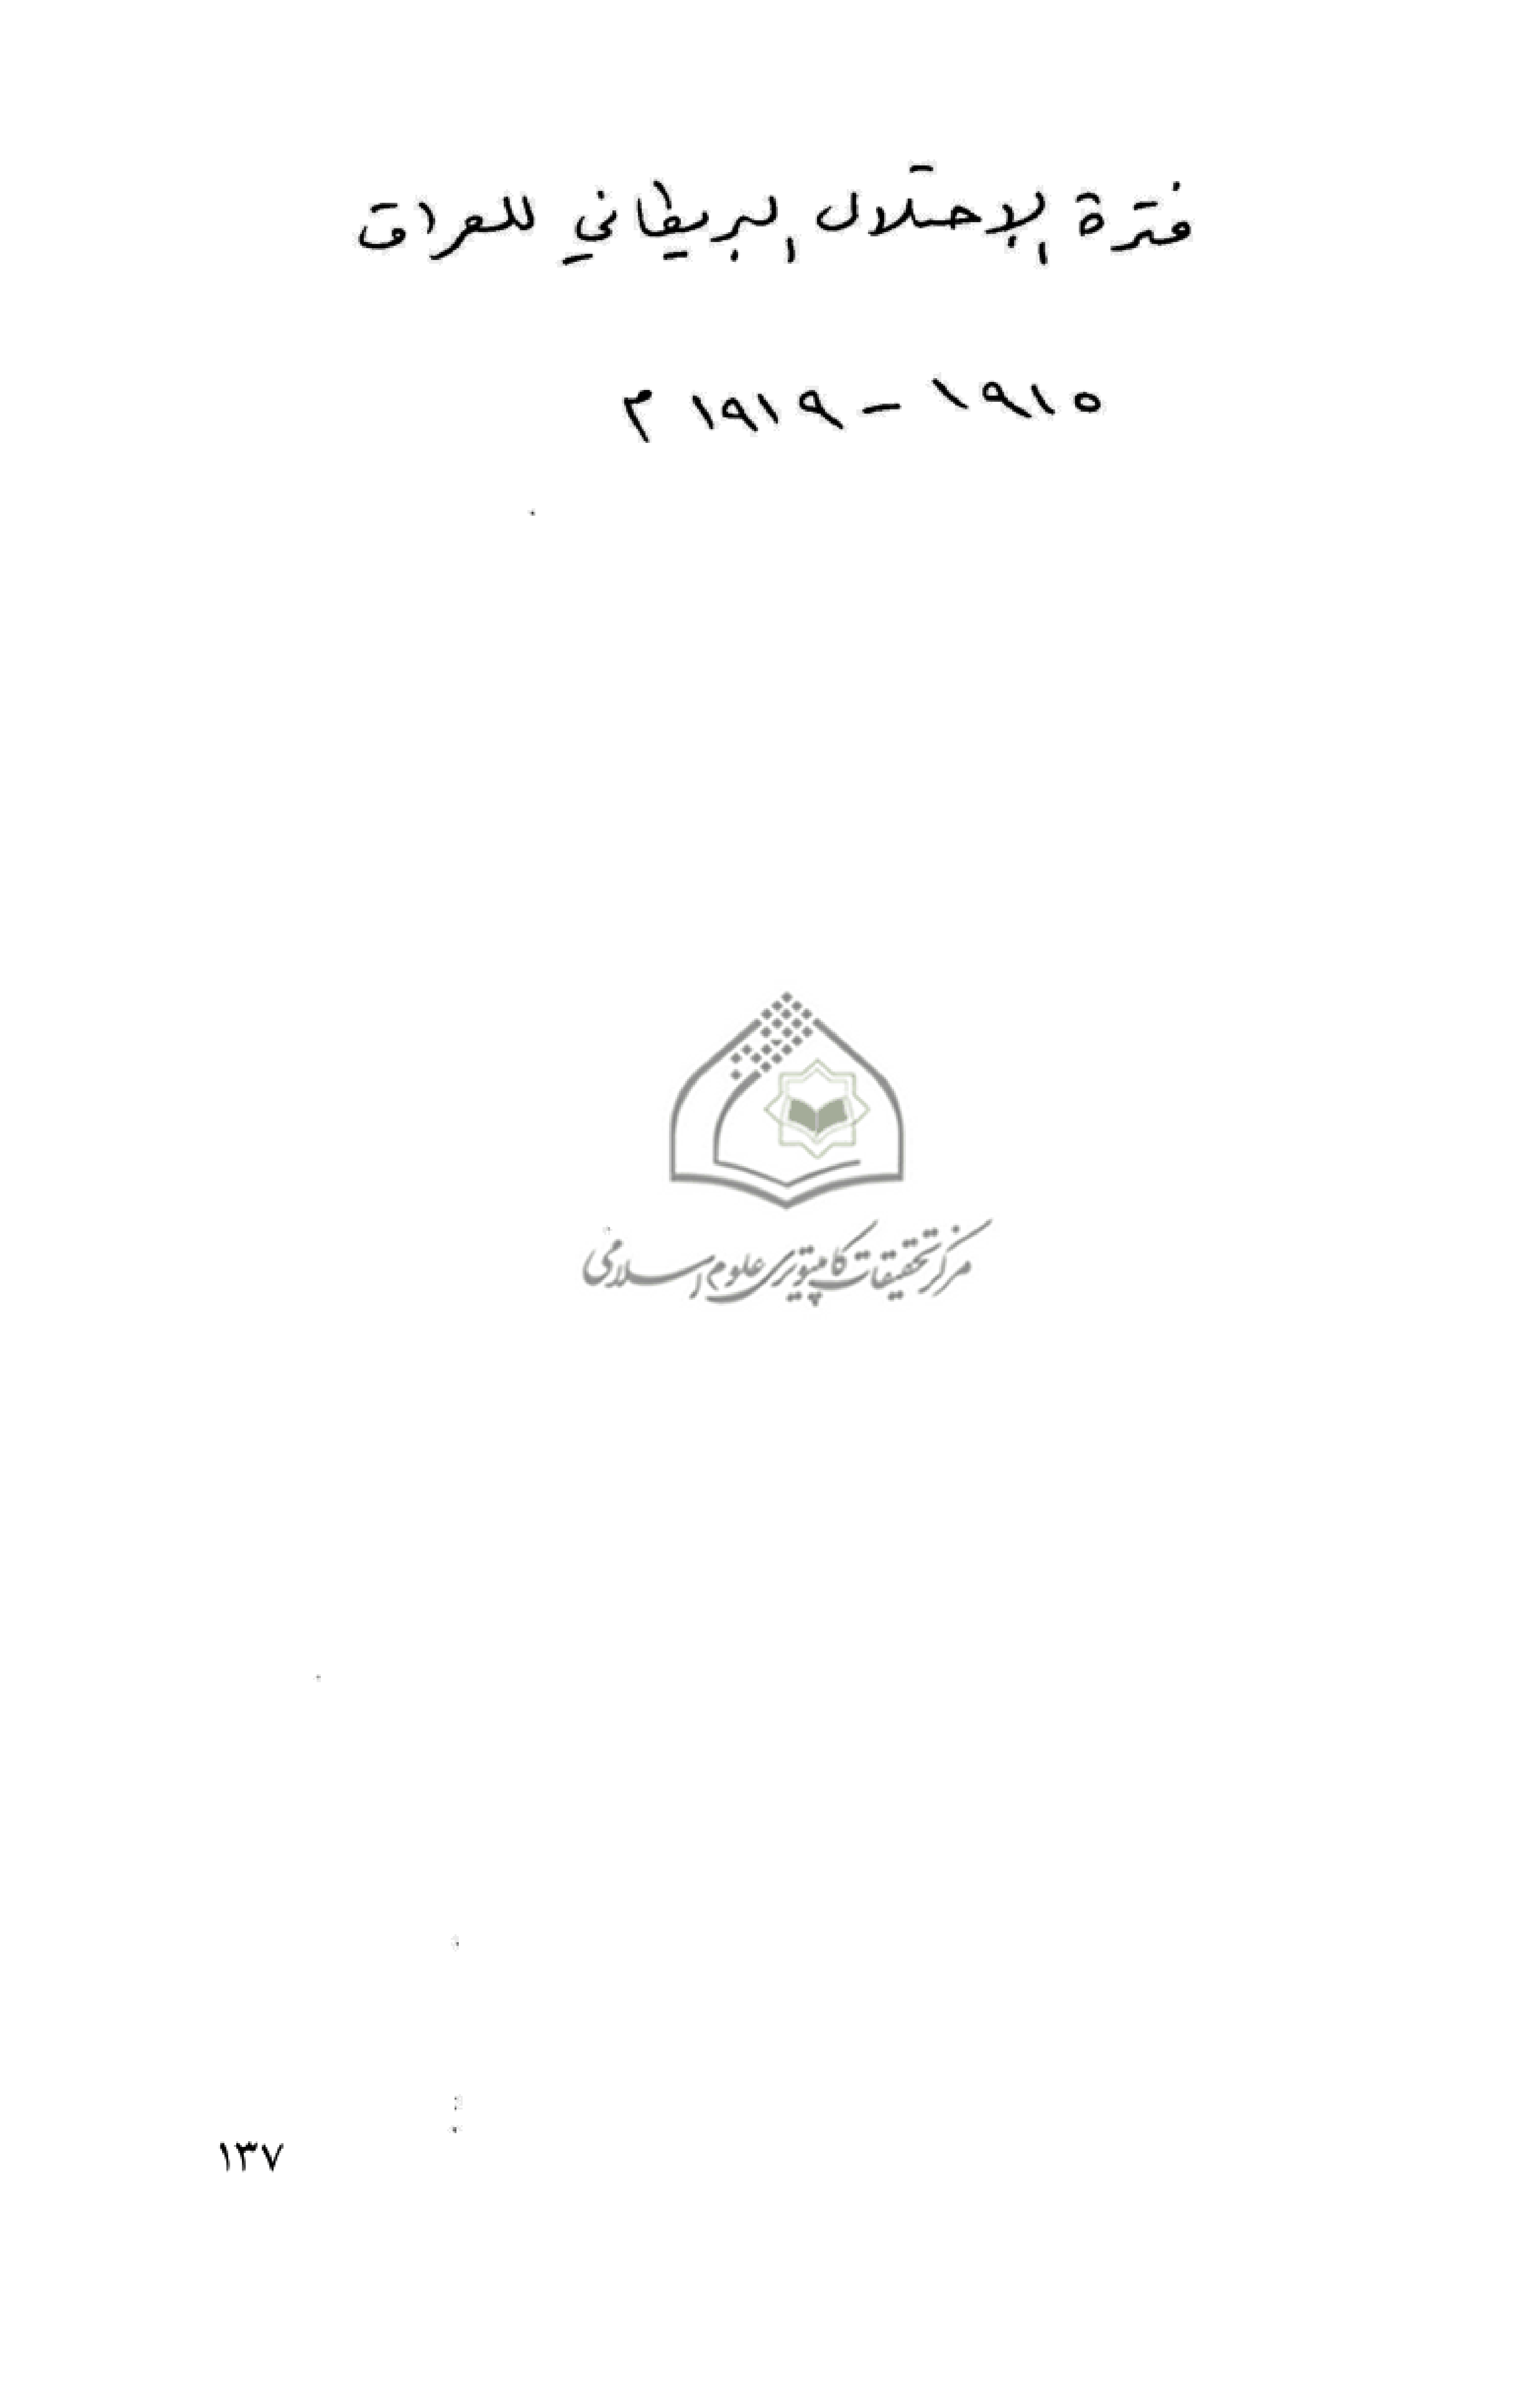 فترة الإحتلال البريطاني للعراق
١٩١٥ – ١٩١٩ م
مرکز تحقیقات کامپیوتری علوم اسلامی
١٣٧